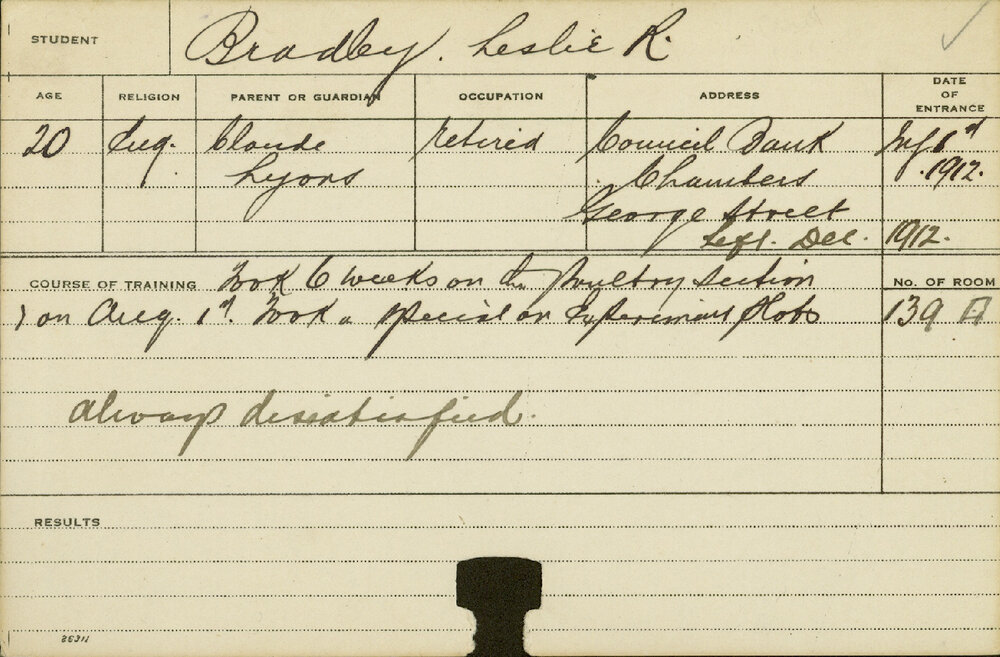 STUDENT Bradley. Leslie R.
AGE RELIGION PARENT OR GUARDIAN OCCUPATION ADDRESS DATE OF ENTRANCE
20 Claude retired Council Bank
Lyons Chambers 1912.
George Street
Left. Dec. 1912.
COURSE OF TRAINING Took 6 weeks on the Poultry Section No. OF ROOM
on Aug. 1st. Took a special on Experiment Plots 139
always dissatisfied.
RESULTS
26311